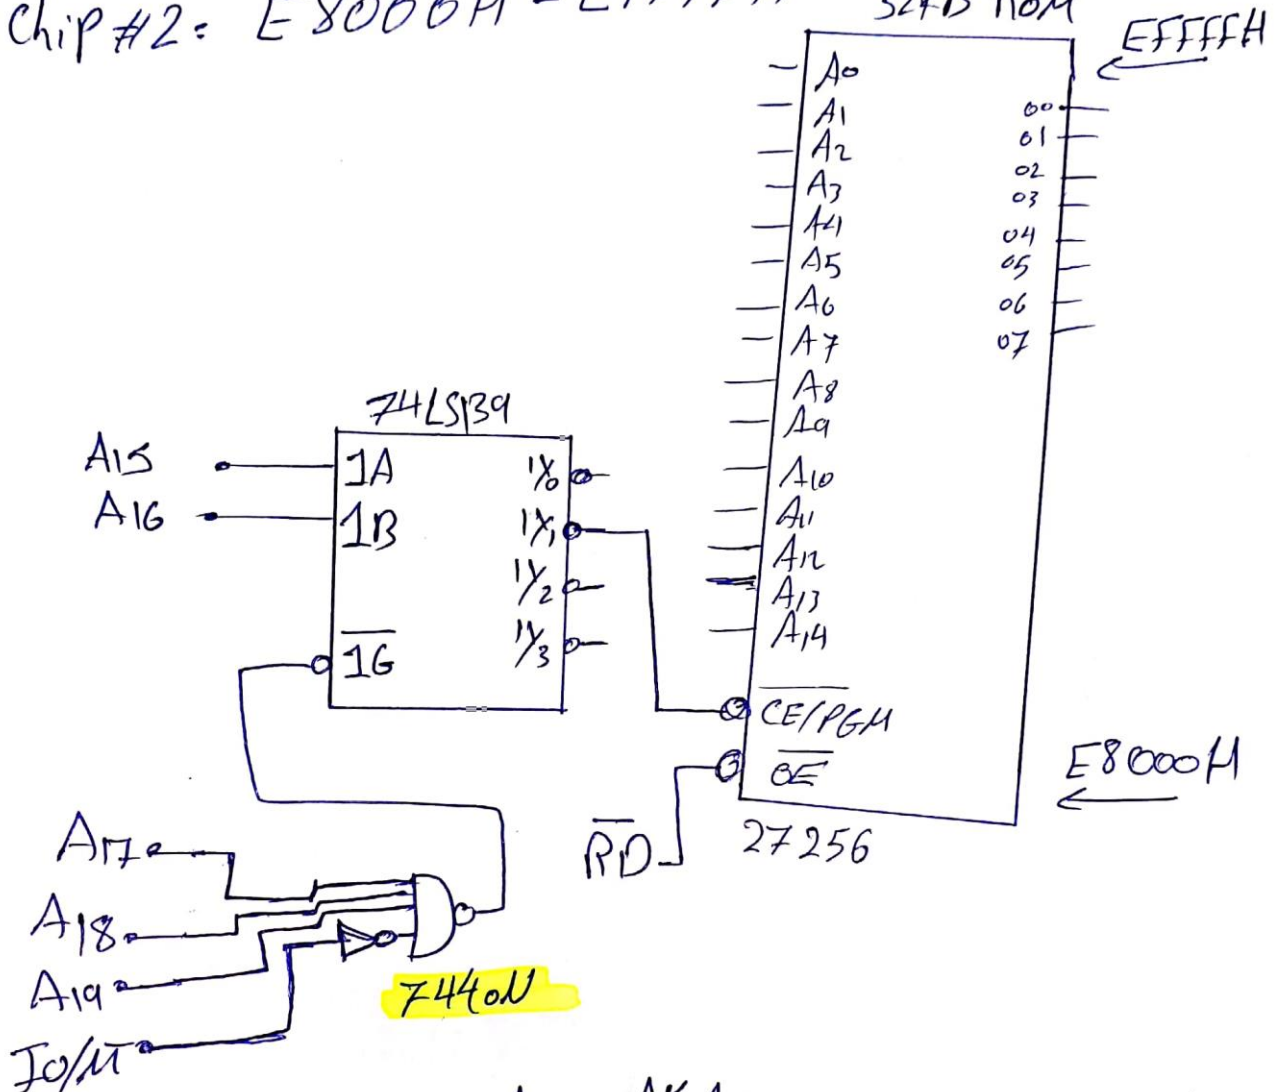 Chip #2: E8000H -
EFFFFH
A0
A1
A2
A3
A4
A5
A6
A7
A8
A9
A10
A11
A12
A13
A14
00
01
02
03
04
05
06
07
CE/PGM
OE
E8000H
27256
RD
74LS139
A15
A16
1A
1B
1G
1Y0
1Y1
1Y2
1Y3
A17
A18
A19
IO/M
7440N